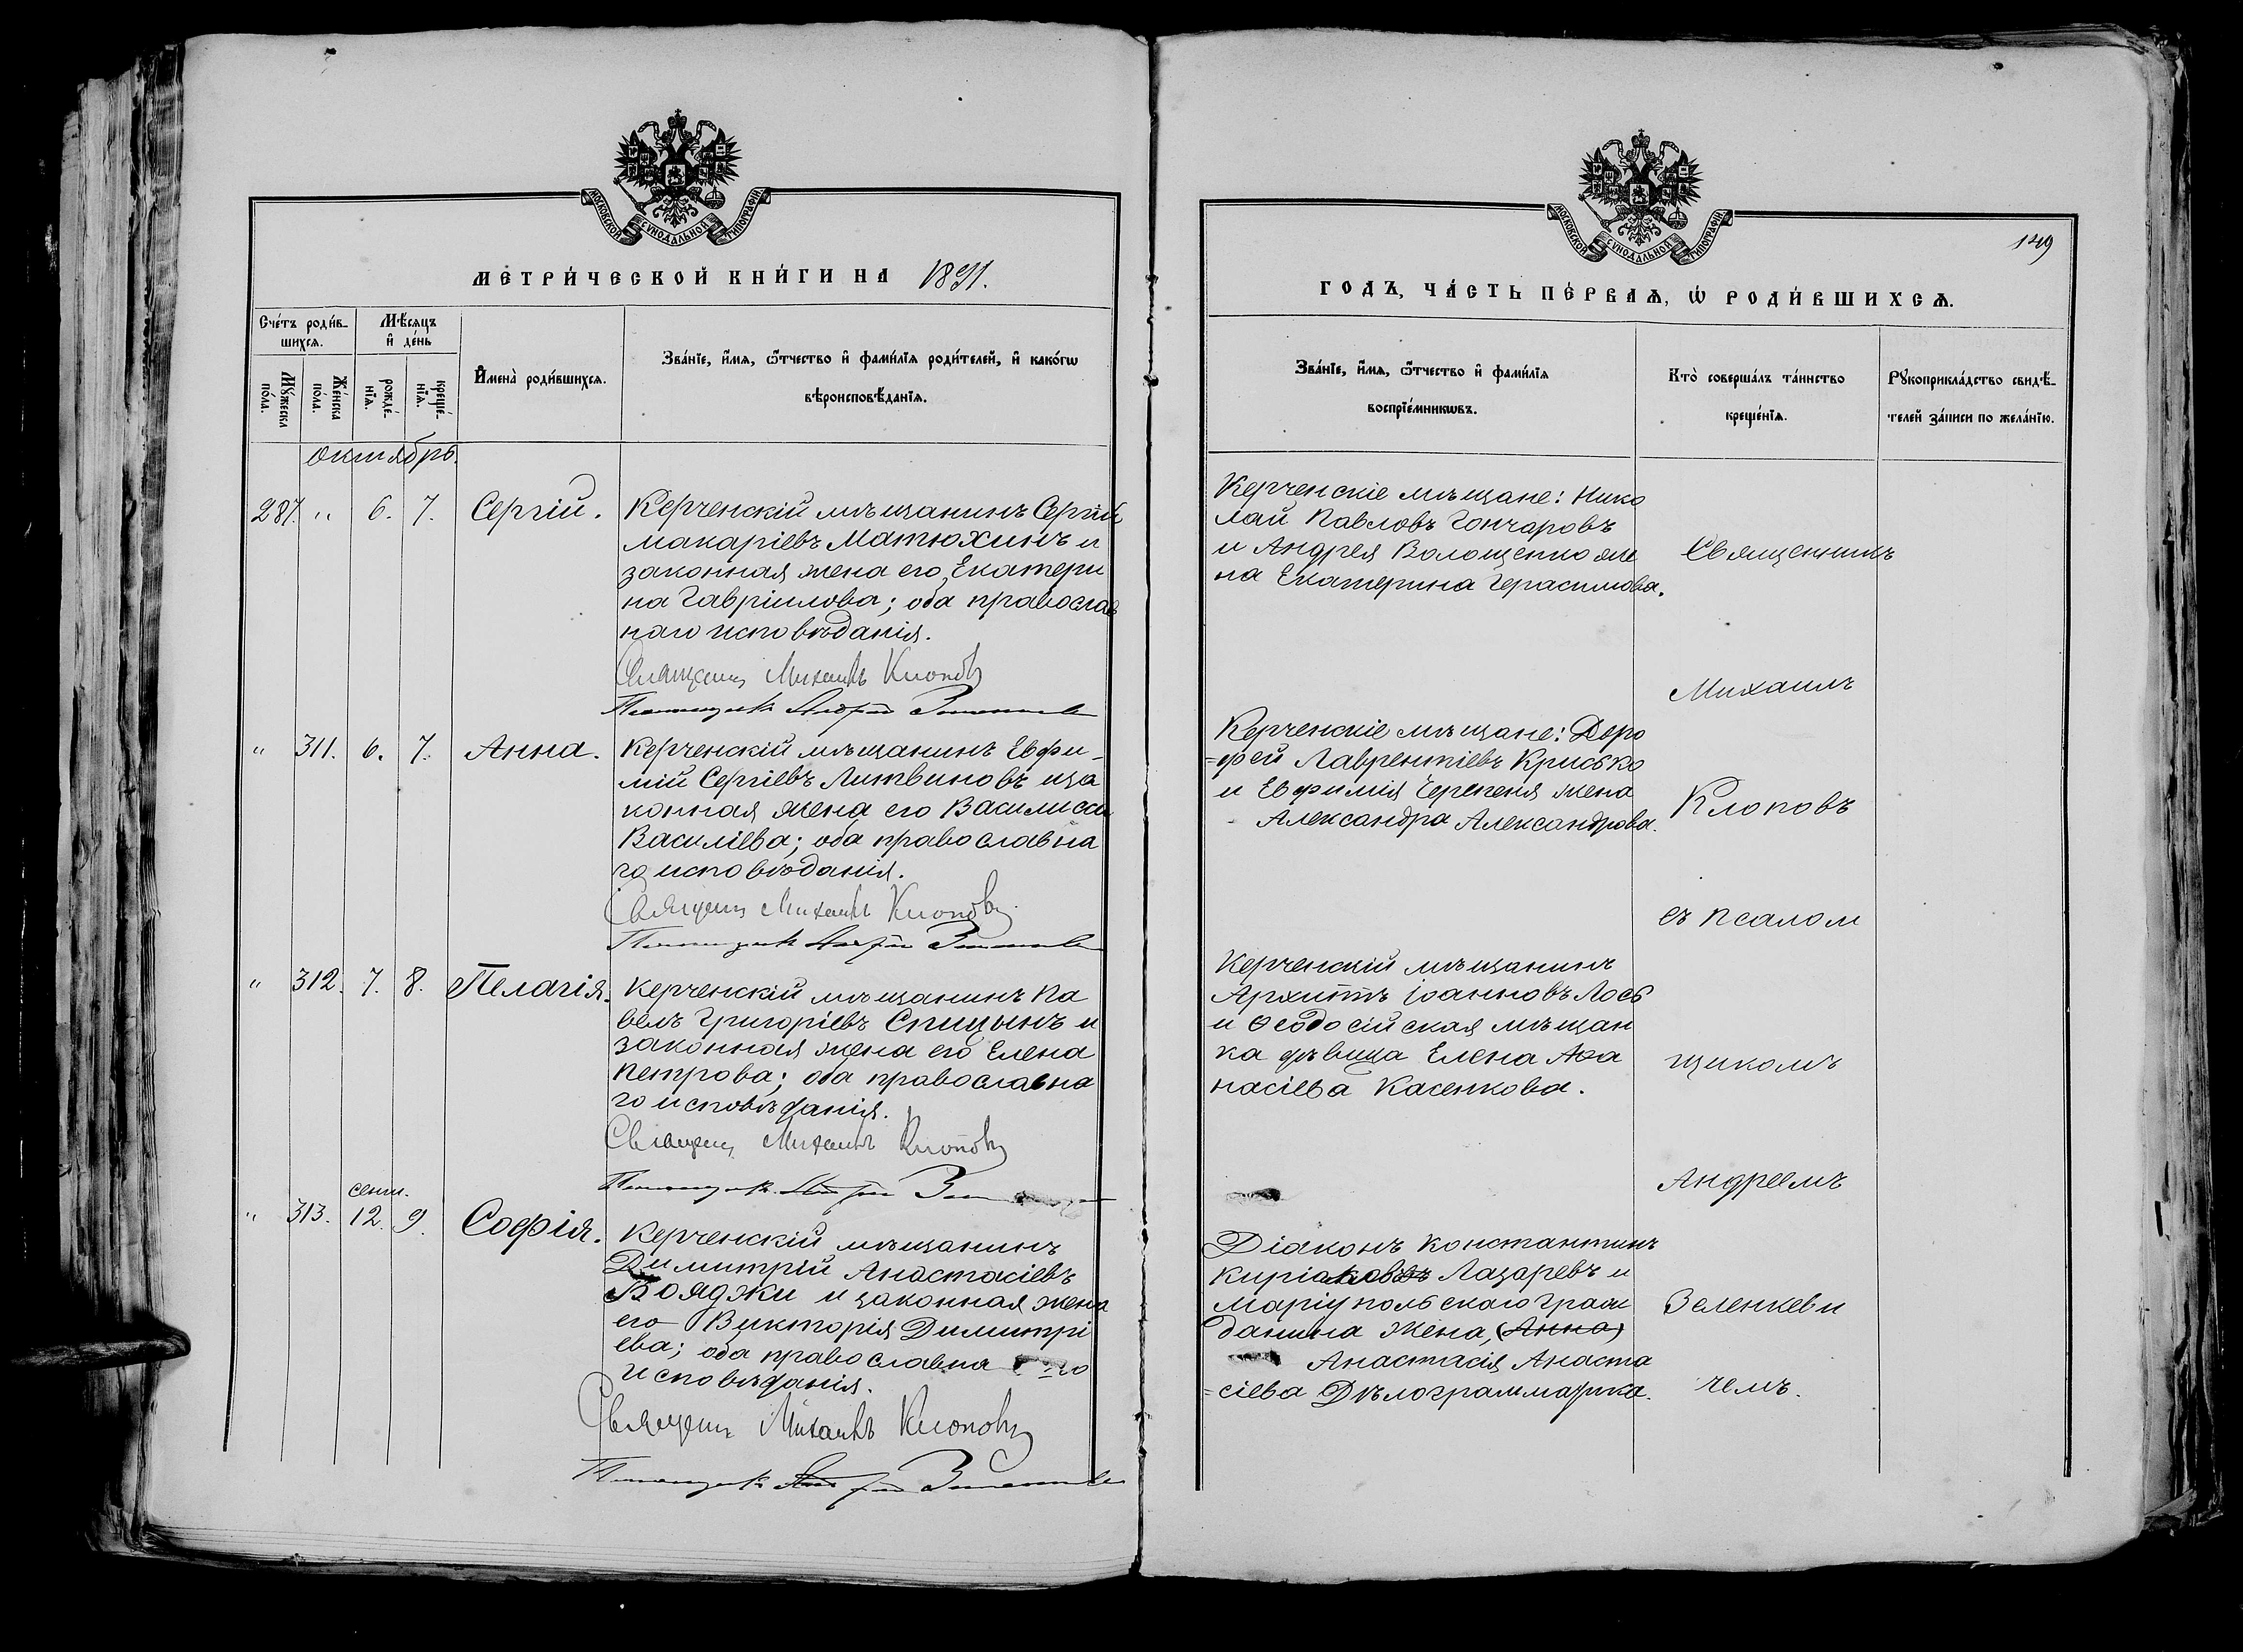 МОСКОВСКОЙ СУНОДАЛЬНОЙ ТИПОГРАФІИ
МЕТРИ́ЧЕСКОЙ КНИ́ГИ НА 1891.
Сче́тъ роди́в-
шихсѧ.
Мѣ́сѧцъ
и҆ де́нь
Мꙋ́жеска
по́ла.
Же́нска
по́ла.
рожде́-
нїѧ.
креще́-
нїѧ.
И҆мена̀ роди́вшихсѧ.
Зва́нїе, и҆́мѧ, ѻ҆́тчество и҆ фами́лїѧ роди́телей, и҆ како́гѡ
вѣроисповѣ́данїѧ.
октябрь.
287. " 6. 7. Сергій.
Керченскій мѣщанинъ Сергій
Макаріевъ Матюхинъ и
законная жена его Екатери
на Гавріилова; оба православ
наго исповѣданія.
Священ Михаилъ Клоповъ
Псаломщикъ Андрей
" 311. 6. 7. Анна.
Керченскій мѣщанинъ Евфи-
мій Сергіевъ Литвиновъ и за
конная жена его Василисса
Василіева; оба православна
го исповѣданія.
Священ Михаилъ Клоповъ
Псаломщикъ Андрей
" 312. 7. 8. Пелагія.
Керченскій мѣщанинъ Па
велъ Григоріевъ Спицынъ и
законная жена его Елена
Петрова; оба православна
го исповѣданія.
Священ Михаилъ Клоповъ
Псаломщикъ Андрей
сент.
" 313. 12. 9. Софія.
Керченскій мѣщанинъ
Димитрій Анастасіевъ
Бояджи и законная жена
его Викторія Димитрі
ева; оба православна го
исповѣданія.
Священ Михаилъ Клоповъ
Псаломщикъ Андрей
МОСКОВСКОЙ СУНОДАЛЬНОЙ ТИПОГРАФІИ
149
ГОДЪ, ЧА́СТЬ ПЕ́РВАѦ, Ѡ҆ РОДИ́ВШИХСѦ.
Зва́нїе, и҆́мѧ, ѻ҆́тчество и҆ фами́лїѧ
воспрїе́мникѡвъ.
Кто̀ соверша́лъ та́инство
креще́нїѧ.
Рꙋкоприкла́дство свидѣ́-
телей за́писи по жела́нїю.
Керченскіе мѣщане: Нико
лай Павловъ Гончаровъ
и Андрея Волощенко же
на Екатерина Герасимова.
Керченскіе мѣщане: Доро
=фей Лаврентіевъ Крисько
и Евфимія Черепеня жена
Александра Александрова.
Керченскій мѣщанинъ
Архиппъ Іоанновъ Лось
и Ѳеодосійская мѣщан
ка дѣвица Елена Аѳа
насіева Касенкова.
Діаконъ Константинъ
Киріаковъ Лазаревъ и
Маріупольскаго граж
данина жена, (Анна)
Анастасія Анаста
=сіева Дѣлограмматика.
Священникъ
Михаилъ
Клоповъ
съ псалом
щикомъ
Андреемъ
Зеленкеви
чемъ.